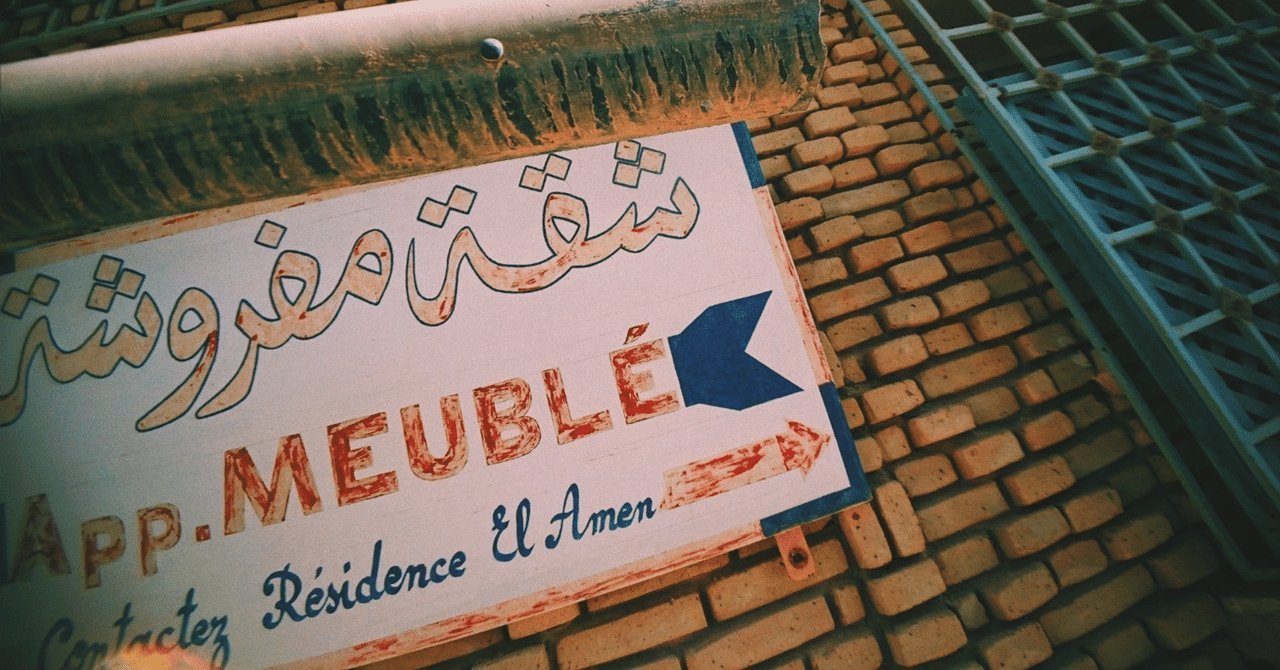 شقة مفروشة
APP. MEUBLÉ
Contactez Résidence El Amen